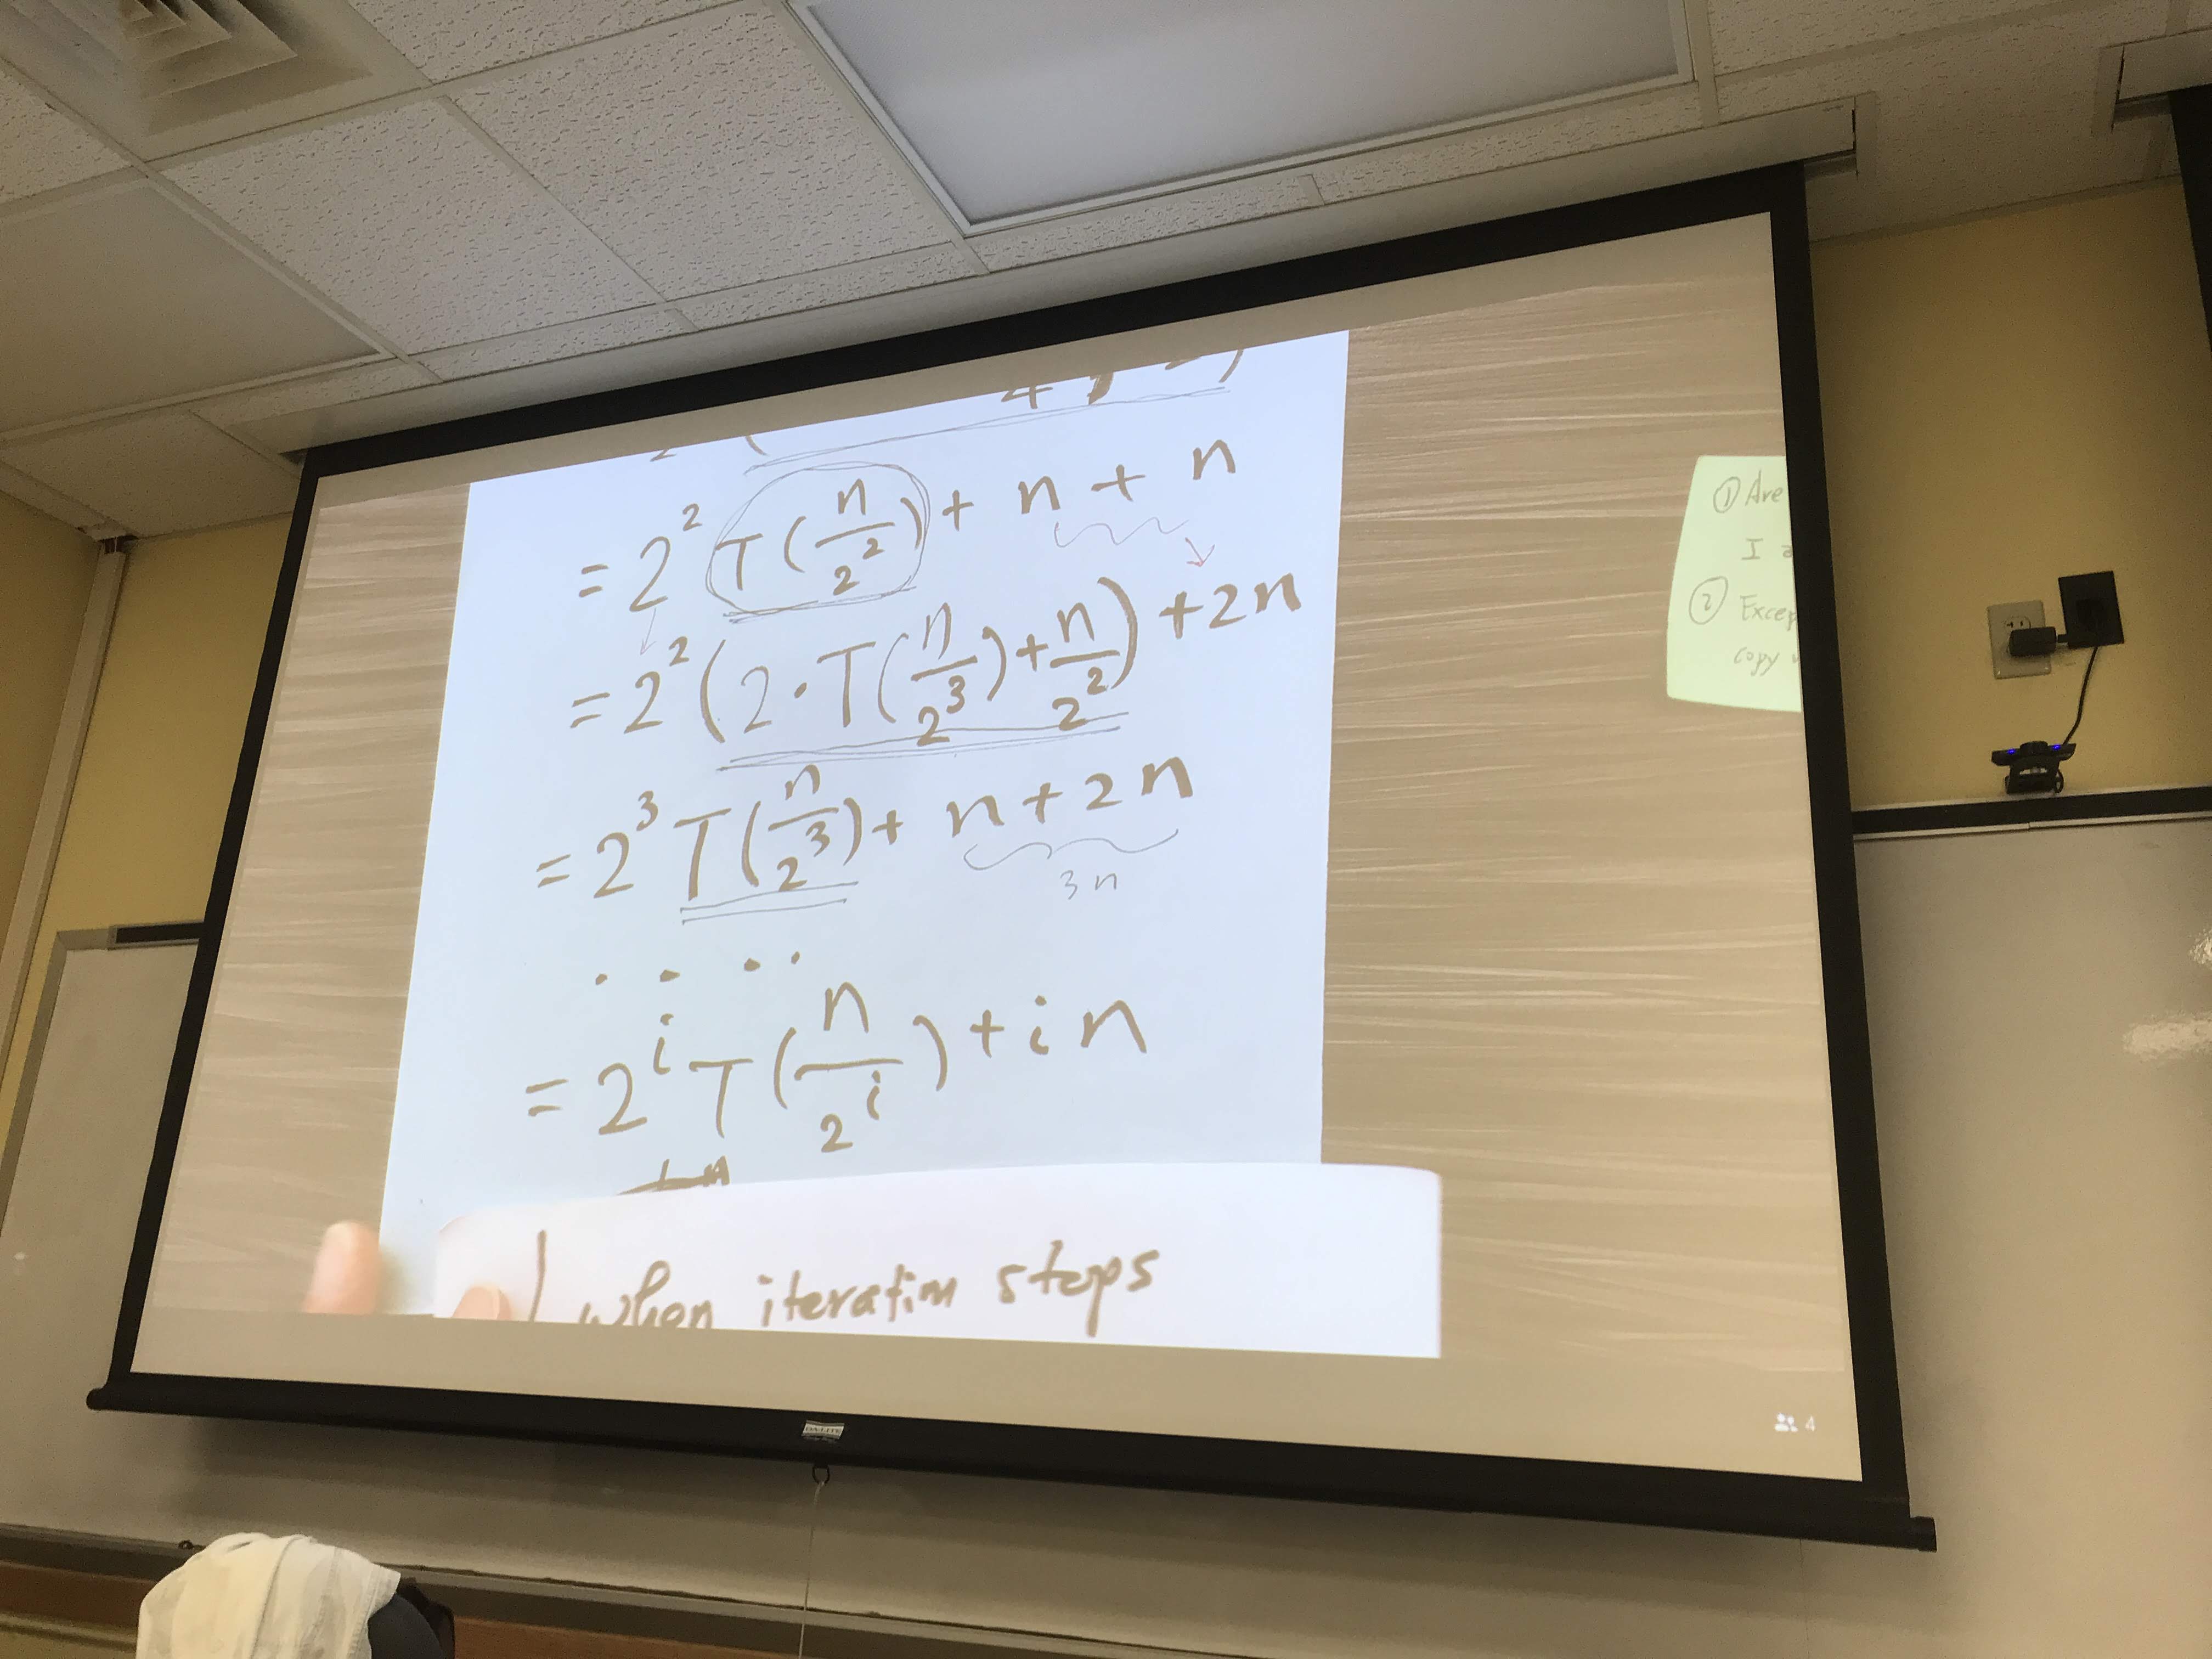 = 2² T(n/2²) + n + n
= 2² (2·T(n/2³) + n/2²) + 2n
= 2³ T(n/2³) + n + 2n
3n
. . . .
= 2ⁱ T(n/2ⁱ) + in
when iteration stops
① Are
I
② Excep
copy
DA-LITE
4